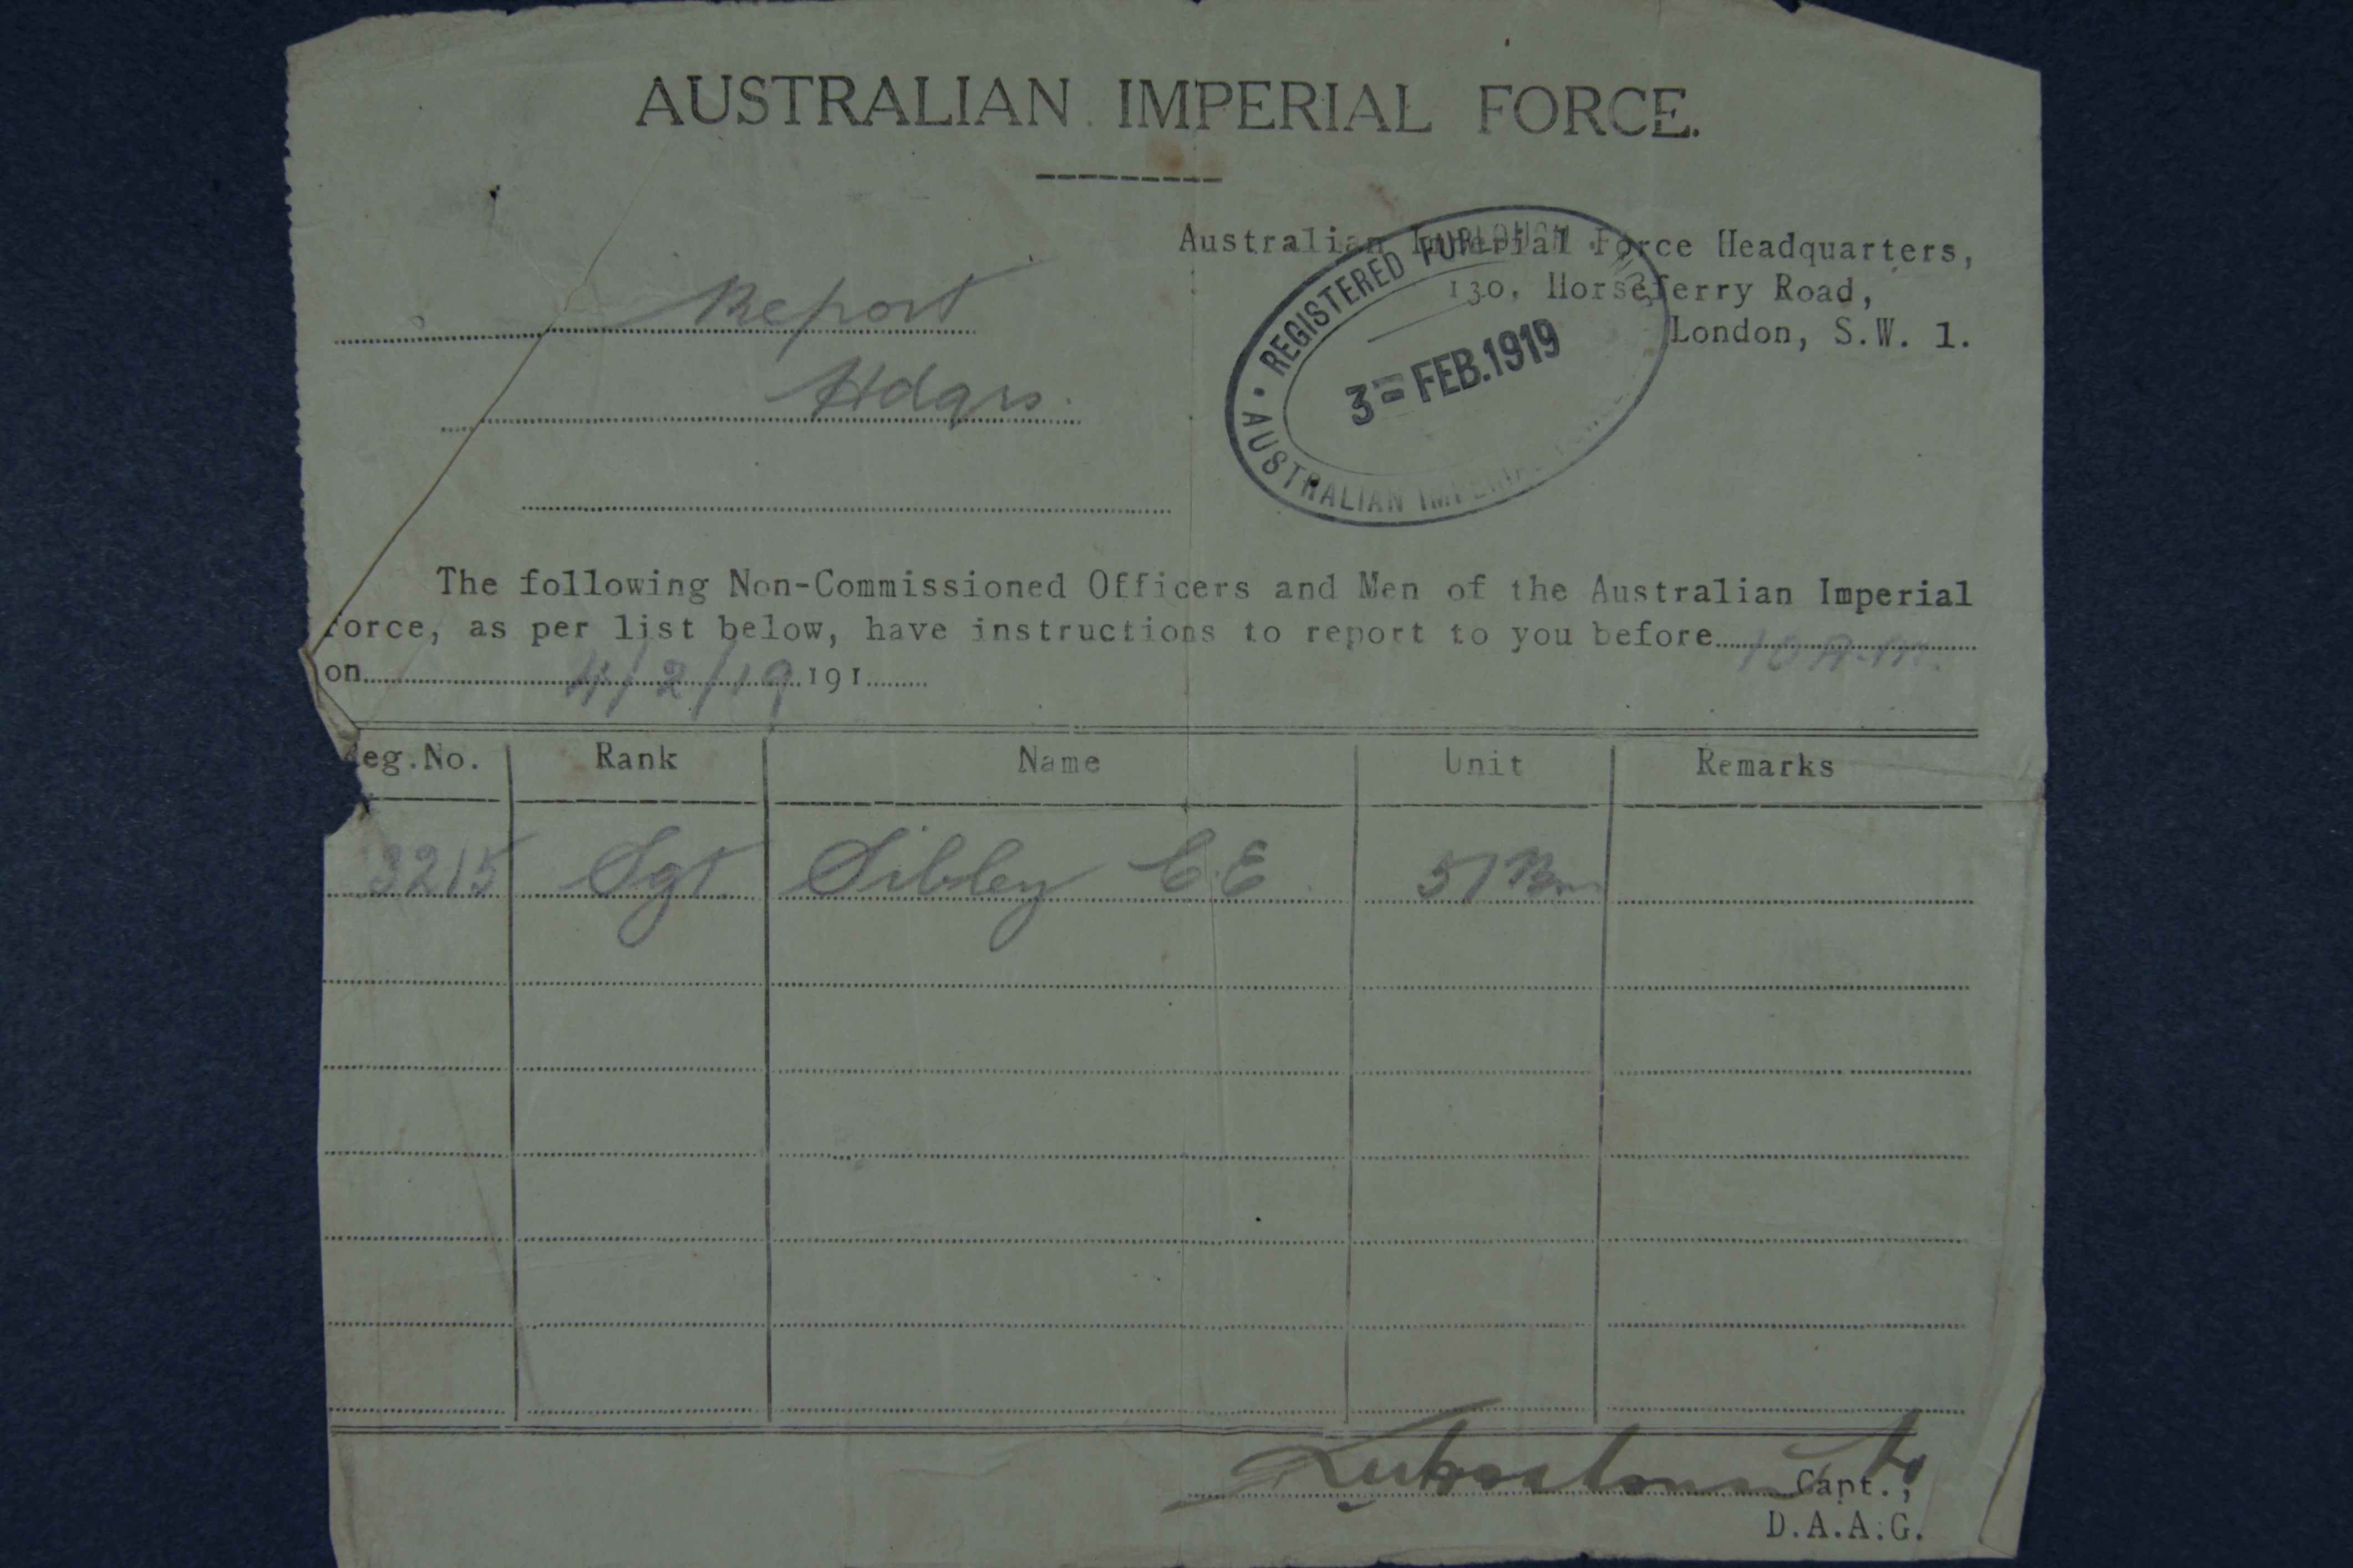 AUSTRALIAN IMPERIAL FORCE.
Australian Imperial Force Headquarters,
130, Horseferry Road,
London, S.W. 1.
REGISTERED FURLOUGH
3 = FEB. 1919
AUSTRALIAN IMPERIAL
Report
Hdqrs.
The following Non-Commissioned Officers and Men of the Australian Imperial
Force, as per list below, have instructions to report to you before 10 A.M.
on 4/2/19 191
Reg.No. Rank Name Unit Remarks
3215 Sgt Sibley C.E. 51 Bn
Capt.,
D.A.A.G.